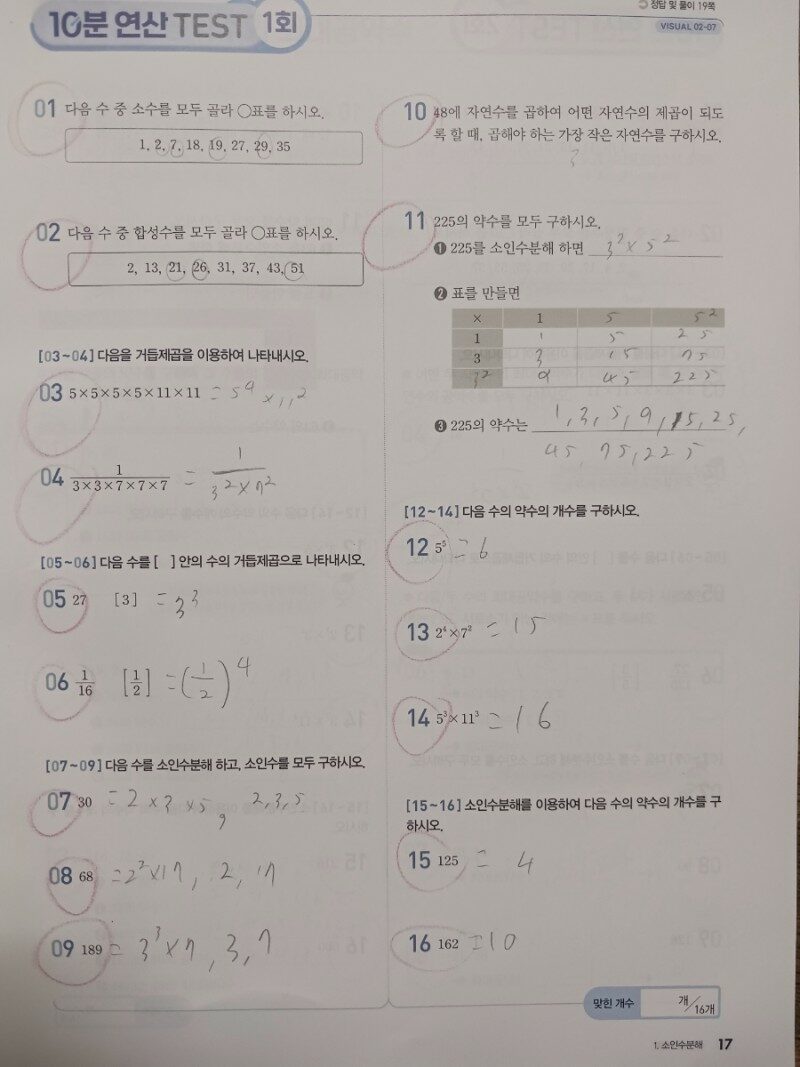 10분 연산 TEST 1회
정답 및 풀이 19쪽
VISUAL 02-07
01 다음 수 중 소수를 모두 골라 ○표를 하시오.
1, 2, 7, 18, 19, 27, 29, 35
02 다음 수 중 합성수를 모두 골라 ○표를 하시오.
2, 13, 21, 26, 31, 37, 43, 51
[03~04] 다음을 거듭제곱을 이용하여 나타내시오.
03 5×5×5×5×11×11 = 5⁴ × 11²
04 1/(3×3×7×7×7) = 1/(3²×7²)
[05~06] 다음 수를 [ ] 안의 수의 거듭제곱으로 나타내시오.
05 27 [3] = 3³
06 1/16 [1/2] = (1/2)⁴
[07~09] 다음 수를 소인수분해 하고, 소인수를 모두 구하시오.
07 30 = 2×3×5, 2,3,5
08 68 = 2²×17, 2, 17
09 189 = 3³×7, 3, 7
10 48에 자연수를 곱하여 어떤 자연수의 제곱이 되도
록 할 때, 곱해야 하는 가장 작은 자연수를 구하시오.
3
11 225의 약수를 모두 구하시오.
❶ 225를 소인수분해 하면 3²×5²
❷ 표를 만들면
× 1 5 5²
1 1 5 25
3 3 15 75
3² 9 45 225
❸ 225의 약수는 1, 3, 5, 9, 15, 25,
45, 75, 225
[12~14] 다음 수의 약수의 개수를 구하시오.
12 5⁵ = 6
13 2⁴×7² = 15
14 5³×11³ = 16
[15~16] 소인수분해를 이용하여 다음 수의 약수의 개수를 구
하시오.
15 125 = 4
16 162 = 10
맞힌 개수 개/16개
1. 소인수분해 17